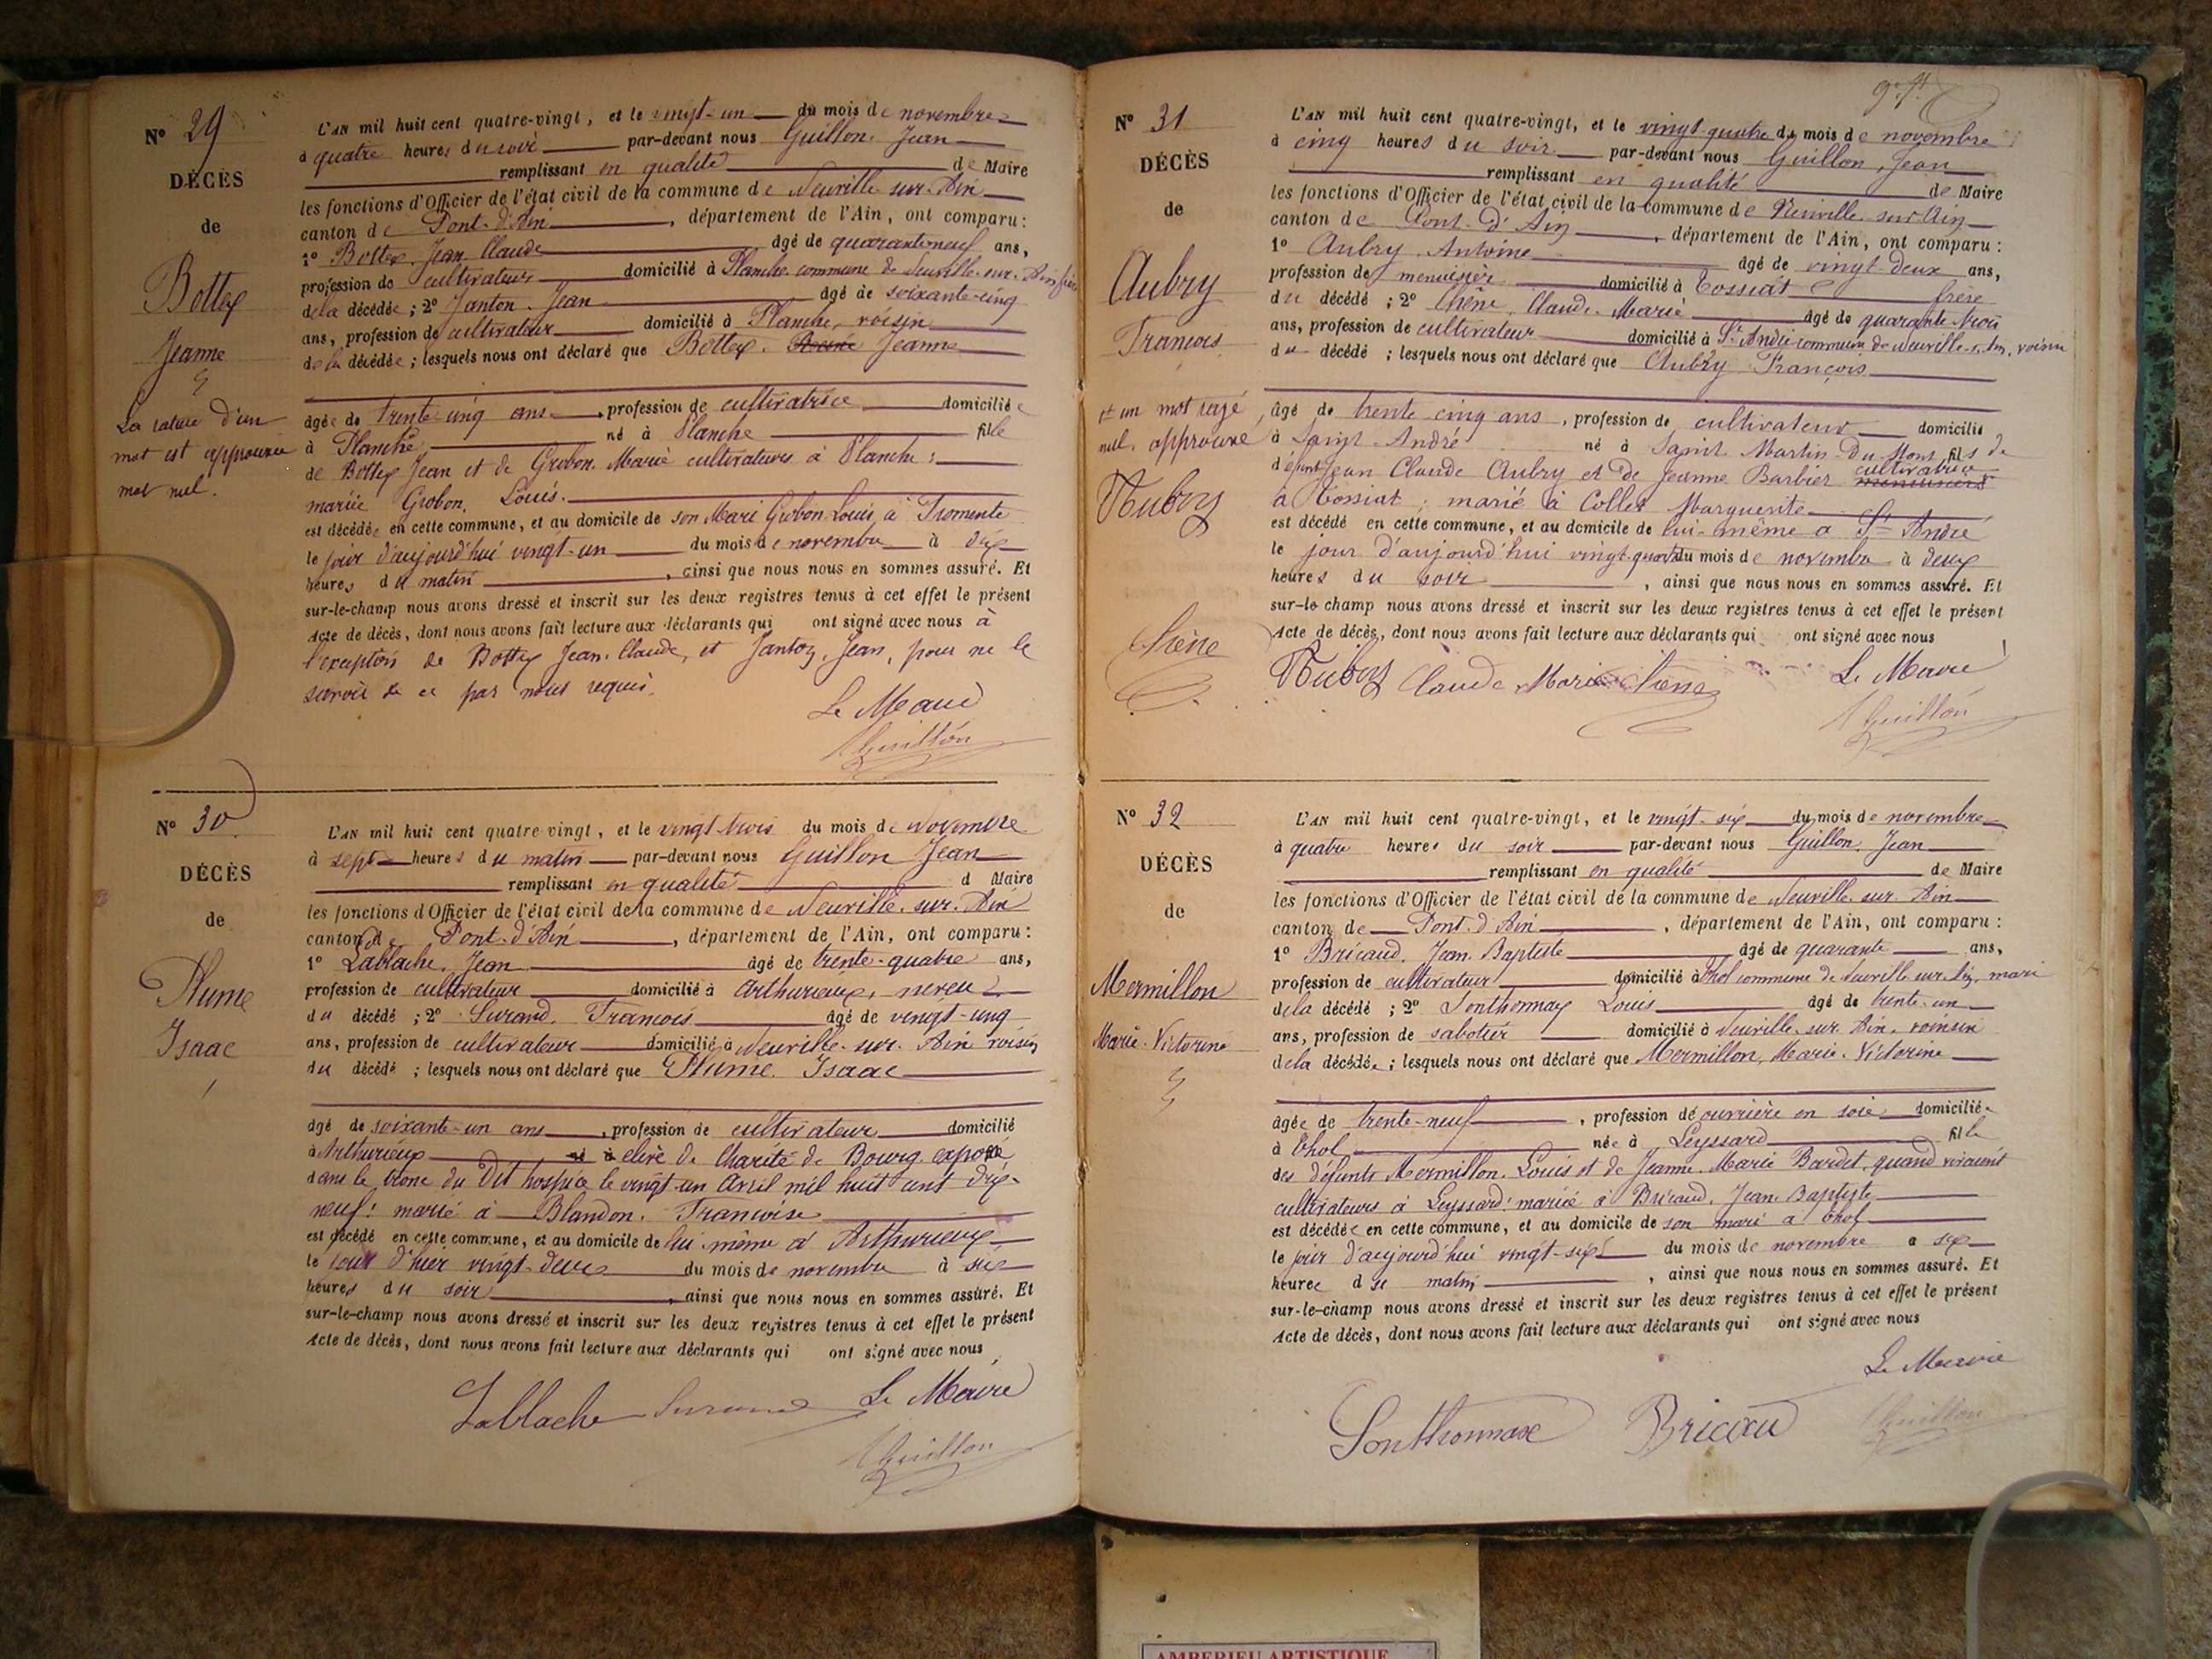 N° 29
DÉCÈS
de
Bottex
Jeanne
La rature d'un
mot est approuvée
mot nul.
L'AN mil huit cent quatre-vingt, et le vingt-un du mois de novembre
à quatre heures du soir par-devant nous Guillon Jean
remplissant en qualité de Maire
les fonctions d'Officier de l'état civil de la commune de Neuville sur Ain
canton de Pont-d'Ain, département de l'Ain, ont comparu :
1° Bottex Jean Claude âgé de quarante neuf ans,
profession de cultivateur domicilié à Planche commune de Neuville-sur-Ain frère
de la décédée ; 2° Janton Jean âgé de soixante-cinq
ans, profession de cultivateur domicilié à Planche, voisin
de la décédée ; lesquels nous ont déclaré que Bottex Jeanne
âgée de trente-cinq ans, profession de cultivatrice domiciliée
à Planche né à Planche fille
de Bottex Jean et de Grobon Marie cultivateurs à Planche :
mariée Grobon, Louis.
est décédée en cette commune, et au domicile de son Mari Grobon Louis, à Fromente
le jour d'aujourd'hui vingt-un du mois de novembre à dix
heures du matin, ainsi que nous nous en sommes assuré. Et
sur-le-champ nous avons dressé et inscrit sur les deux registres tenus à cet effet le présent
Acte de décès, dont nous avons fait lecture aux déclarants qui ont signé avec nous à
l'exception de Bottex Jean-Claude, et Janton, Jean, pour ne le
savoir de ce par nous requis.
Le Maire
Guillon
N° 30
DÉCÈS
de
Plume
Isaac
L'AN mil huit cent quatre-vingt, et le vingt trois du mois de novembre
à sept heures du matin par-devant nous Guillon Jean
remplissant en qualité d Maire
les fonctions d'Officier de l'état civil de la commune de Neuville-sur-Ain
canton de Pont-d'Ain, département de l'Ain, ont comparu :
1° Lablache, Jean âgé de trente-quatre ans,
profession de cultivateur domicilié à Arthurieux, neveu
du décédé ; 2° Surand, François âgé de vingt-cinq
ans, profession de cultivateur domicilié à Neuville-sur-Ain voisin
du décédé ; lesquels nous ont déclaré que Plume Isaac
âgé de soixante-un ans, profession de cultivateur domicilié
à Arthurieux élève de Charité de Bourg exposé
dans le trone du Dit hospice le vingt-un Avril mil huit cent dix-
neuf : marié à Blandon, Françoise
est décédé en cette commune, et au domicile de lui-même à Arthurieux
le jour d'hier vingt-deux du mois de novembre à six
heures du soir, ainsi que nous nous en sommes assuré. Et
sur-le-champ nous avons dressé et inscrit sur les deux registres tenus à cet effet le présent
Acte de décès, dont nous avons fait lecture aux déclarants qui ont signé avec nous
Lablache Surand Le Maire
Guillon
N° 31
DÉCÈS
de
Aubry
François
et un mot rayé
nul, approuvé
Aubry
Chêne
L'AN mil huit cent quatre-vingt, et le vingt-quatre du mois de novembre
à cinq heures du soir par-devant nous Guillon, Jean
remplissant en qualité de Maire
les fonctions d'Officier de l'état civil de la commune de Neuville-sur-Ain
canton de Pont-d'Ain, département de l'Ain, ont comparu :
1° Aubry Antoine âgé de vingt-deux ans,
profession de menuisier domicilié à Tossiat frère
du décédé ; 2° Chêne, Claude-Marie âgé de quarante-trois
ans, profession de cultivateur domicilié à St André commune de Neuville-s-Ain, voisin
du décédé ; lesquels nous ont déclaré que Aubry François
âgé de trente cinq ans, profession de cultivateur domicilié
à Saint-André né à Saint Martin-du-Mont fils de
défunt Jean Claude Aubry et de Jeanne Barbier cultivatrice menuisiers
à Tossiat : marié à Collet Marguerite
est décédé en cette commune, et au domicile de lui-même à St André
le jour d'aujourd'hui vingt-quatre du mois de novembre à deux
heures du soir, ainsi que nous nous en sommes assuré. Et
sur-le champ nous avons dressé et inscrit sur les deux registres tenus à cet effet le présent
Acte de décès, dont nous avons fait lecture aux déclarants qui ont signé avec nous
Aubry Claude Marie Chene Le Maire
Guillon
N° 32
DÉCÈS
de
Mermillon
Marie-Victorine
L'AN mil huit cent quatre-vingt, et le vingt-six du mois de novembre
à quatre heures du soir par-devant nous Guillon, Jean
remplissant en qualité de Maire
les fonctions d'Officier de l'état civil de la commune de Neuville-sur-Ain
canton de Pont-d'Ain, département de l'Ain, ont comparu :
1° Bricaud, Jean Baptiste âgé de quarante ans,
profession de cultivateur domicilié à Thol commune de Neuville sur Ain, mari
de la décédé ; 2° Sonthonnax Louis âgé de trente-un
ans, profession de sabotier domicilié à Neuville-sur-Ain, voinsin
de la décédée ; lesquels nous ont déclaré que Mermillon, Marie-Victorine
âgée de trente-neuf, profession de ouvrière en soie domiciliée
à Thol née à Leyssard fille
des défunts Mermillon, Louis et de Jeanne-Marie Bardet, quand vivaient
cultivateurs à Leyssard : mariée à Bricaud, Jean-Baptiste
est décédée en cette commune, et au domicile de son mari à Thol
le jour d'aujourd'hui vingt-six du mois de novembre à six
heures du matin, ainsi que nous nous en sommes assuré. Et
sur-le-champ nous avons dressé et inscrit sur les deux registres tenus à cet effet le présent
Acte de décès, dont nous avons fait lecture aux déclarants qui ont signé avec nous
Le Maire
Sonthonnax Bricau Guillon
AMBERIEU ARTISTIQUE